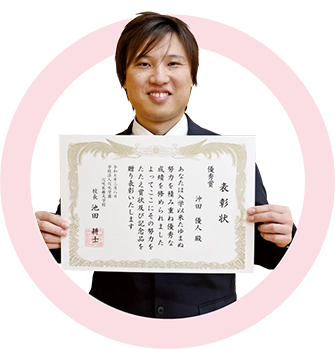 表彰状
優秀賞
沖田 優人 殿
あなたは入学以来たゆまぬ
努力を積み重ね優秀な
成績を修められました
よってここにその努力を
たたえ賞状及び記念品を
贈り表彰いたします
校長 池田 耕士